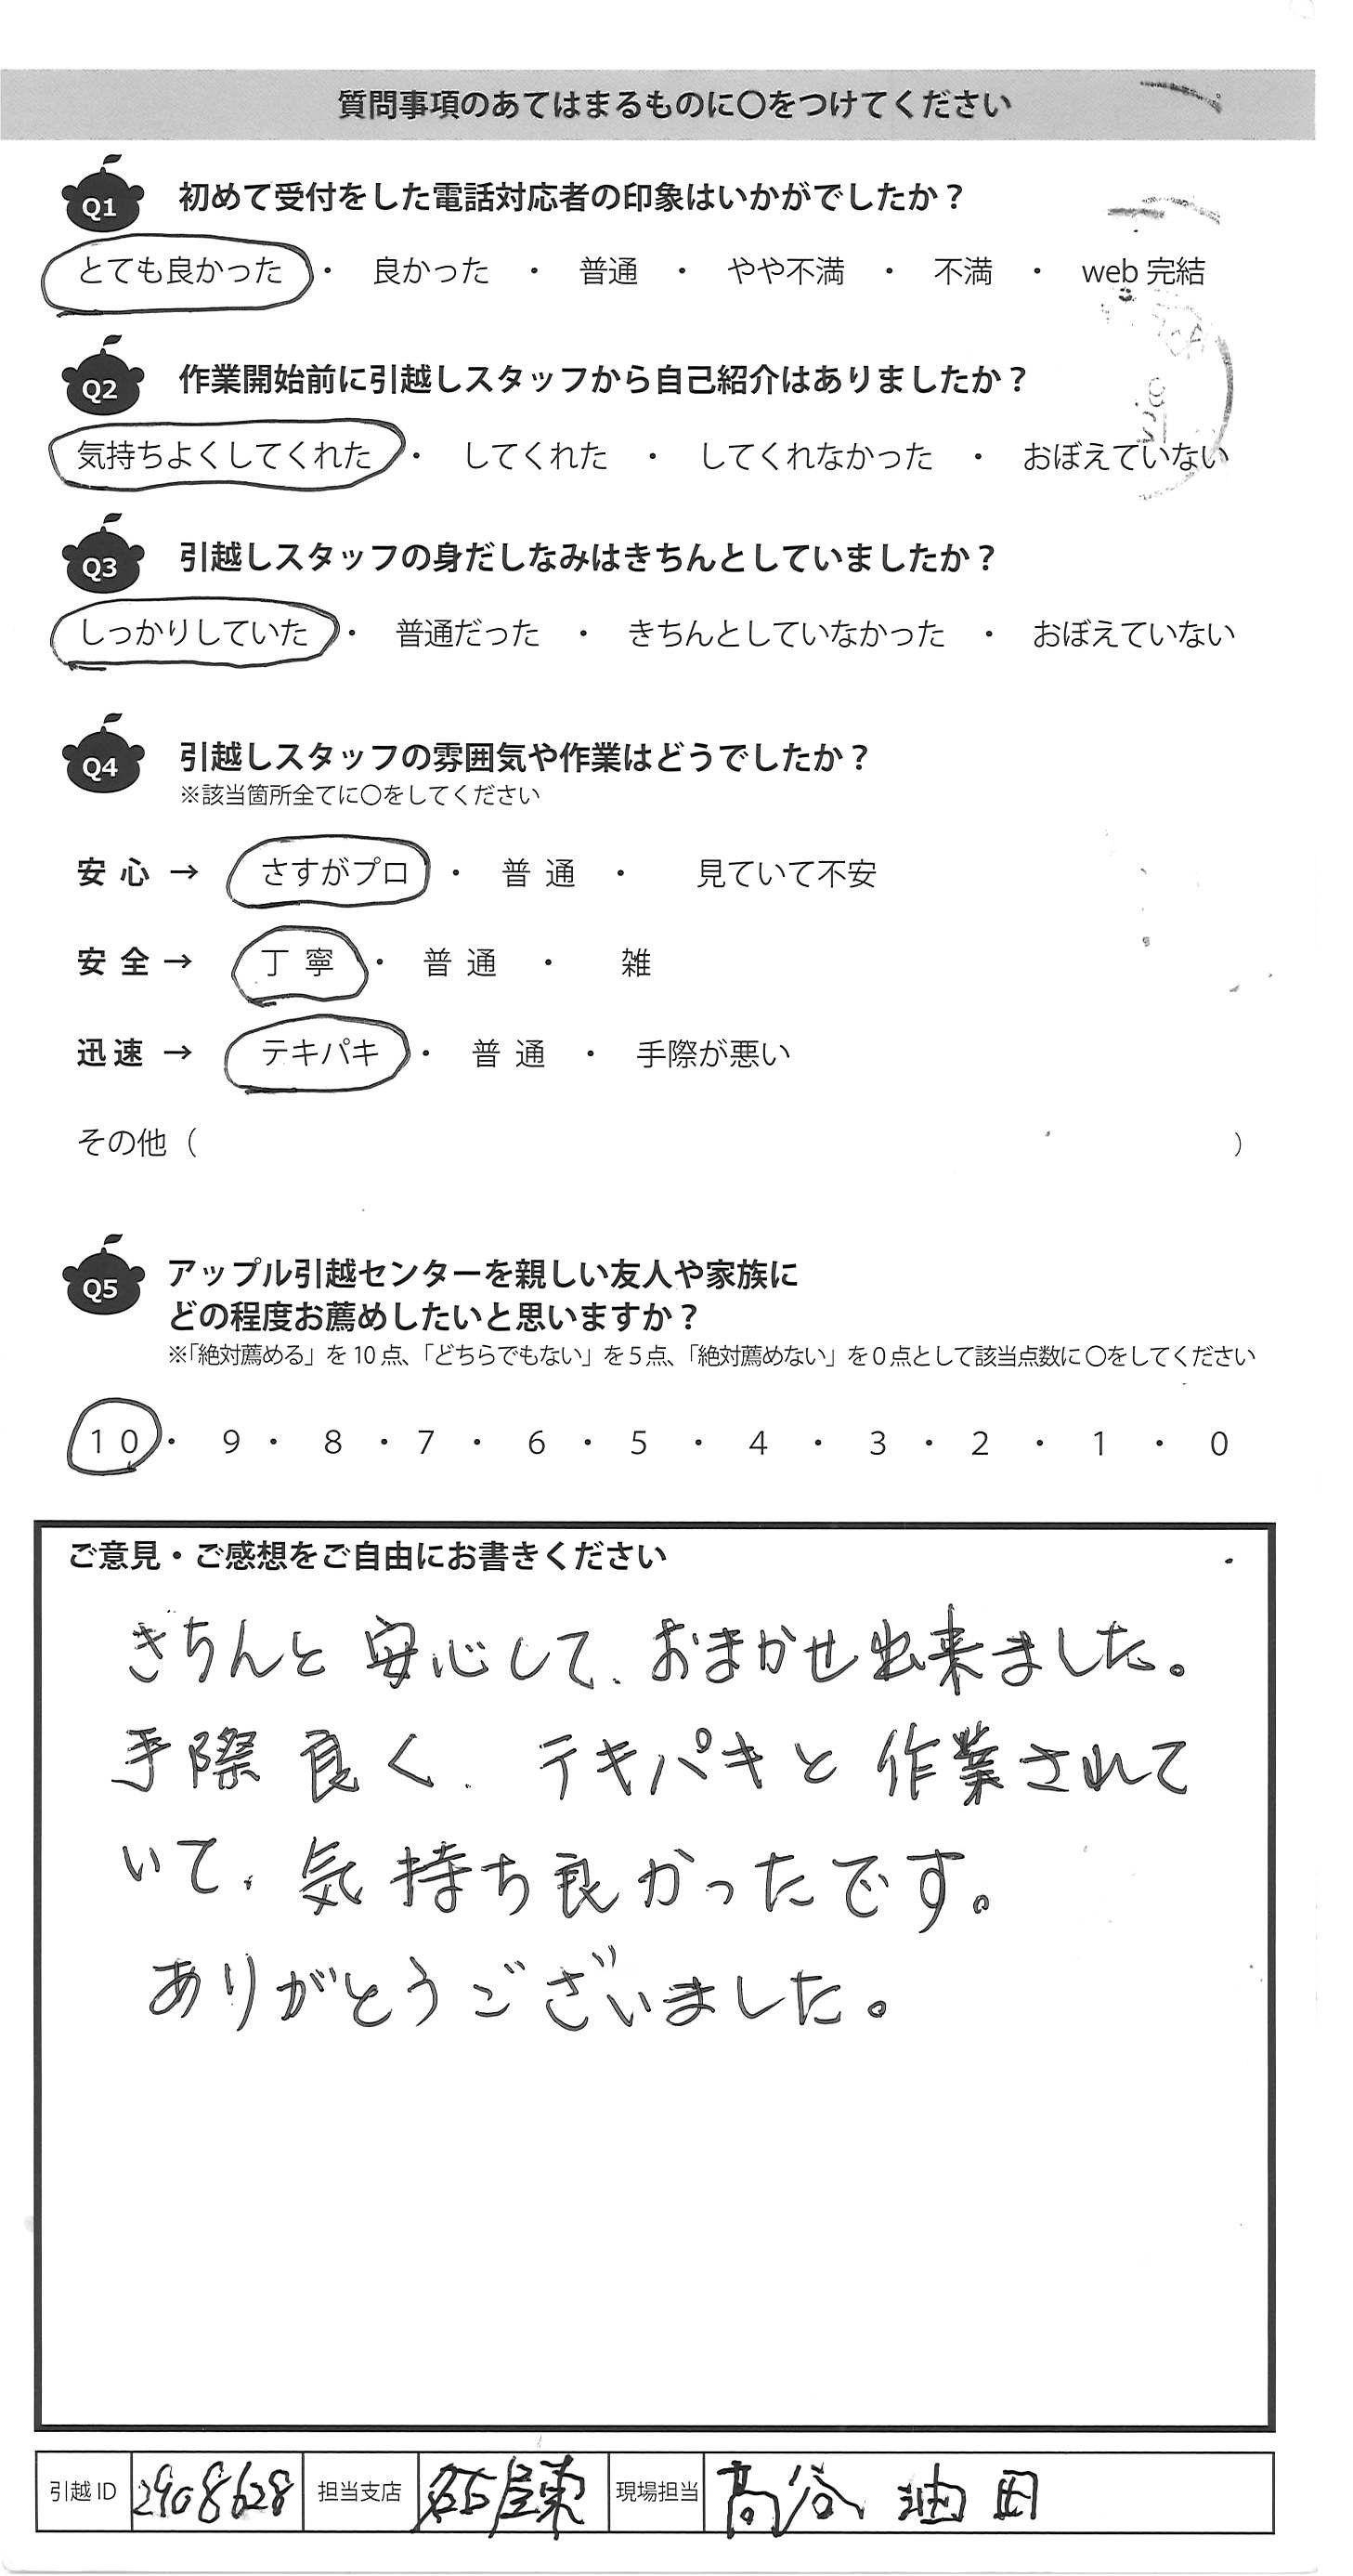 質問事項のあてはまるものに〇をつけてください
Q1 初めて受付をした電話対応者の印象はいかがでしたか？
とても良かった ・ 良かった ・ 普通 ・ やや不満 ・ 不満 ・ web 完結
Q2 作業開始前に引越しスタッフから自己紹介はありましたか？
気持ちよくしてくれた ・ してくれた ・ してくれなかった ・ おぼえていない
Q3 引越しスタッフの身だしなみはきちんとしていましたか？
しっかりしていた ・ 普通だった ・ きちんとしていなかった ・ おぼえていない
Q4 引越しスタッフの雰囲気や作業はどうでしたか？
※該当箇所全てに〇をしてください
安心 → さすがプロ ・ 普通 ・ 見ていて不安
安全 → 丁寧 ・ 普通 ・ 雑
迅速 → テキパキ ・ 普通 ・ 手際が悪い
その他（ ）
Q5 アップル引越センターを親しい友人や家族に
どの程度お薦めしたいと思いますか？
※「絶対薦める」を 10 点、「どちらでもない」を 5 点、「絶対薦めない」を 0 点として該当点数に 〇をしてください
10 ・ 9 ・ 8 ・ 7 ・ 6 ・ 5 ・ 4 ・ 3 ・ 2 ・ 1 ・ 0
ご意見・ご感想をご自由にお書きください
きちんと安心して、おまかせ出来ました。
手際良く、テキパキと作業されて
いて、気持ち良かったです。
ありがとうございました。
引越 ID 2908628 担当支店 現場担当 高谷 油田